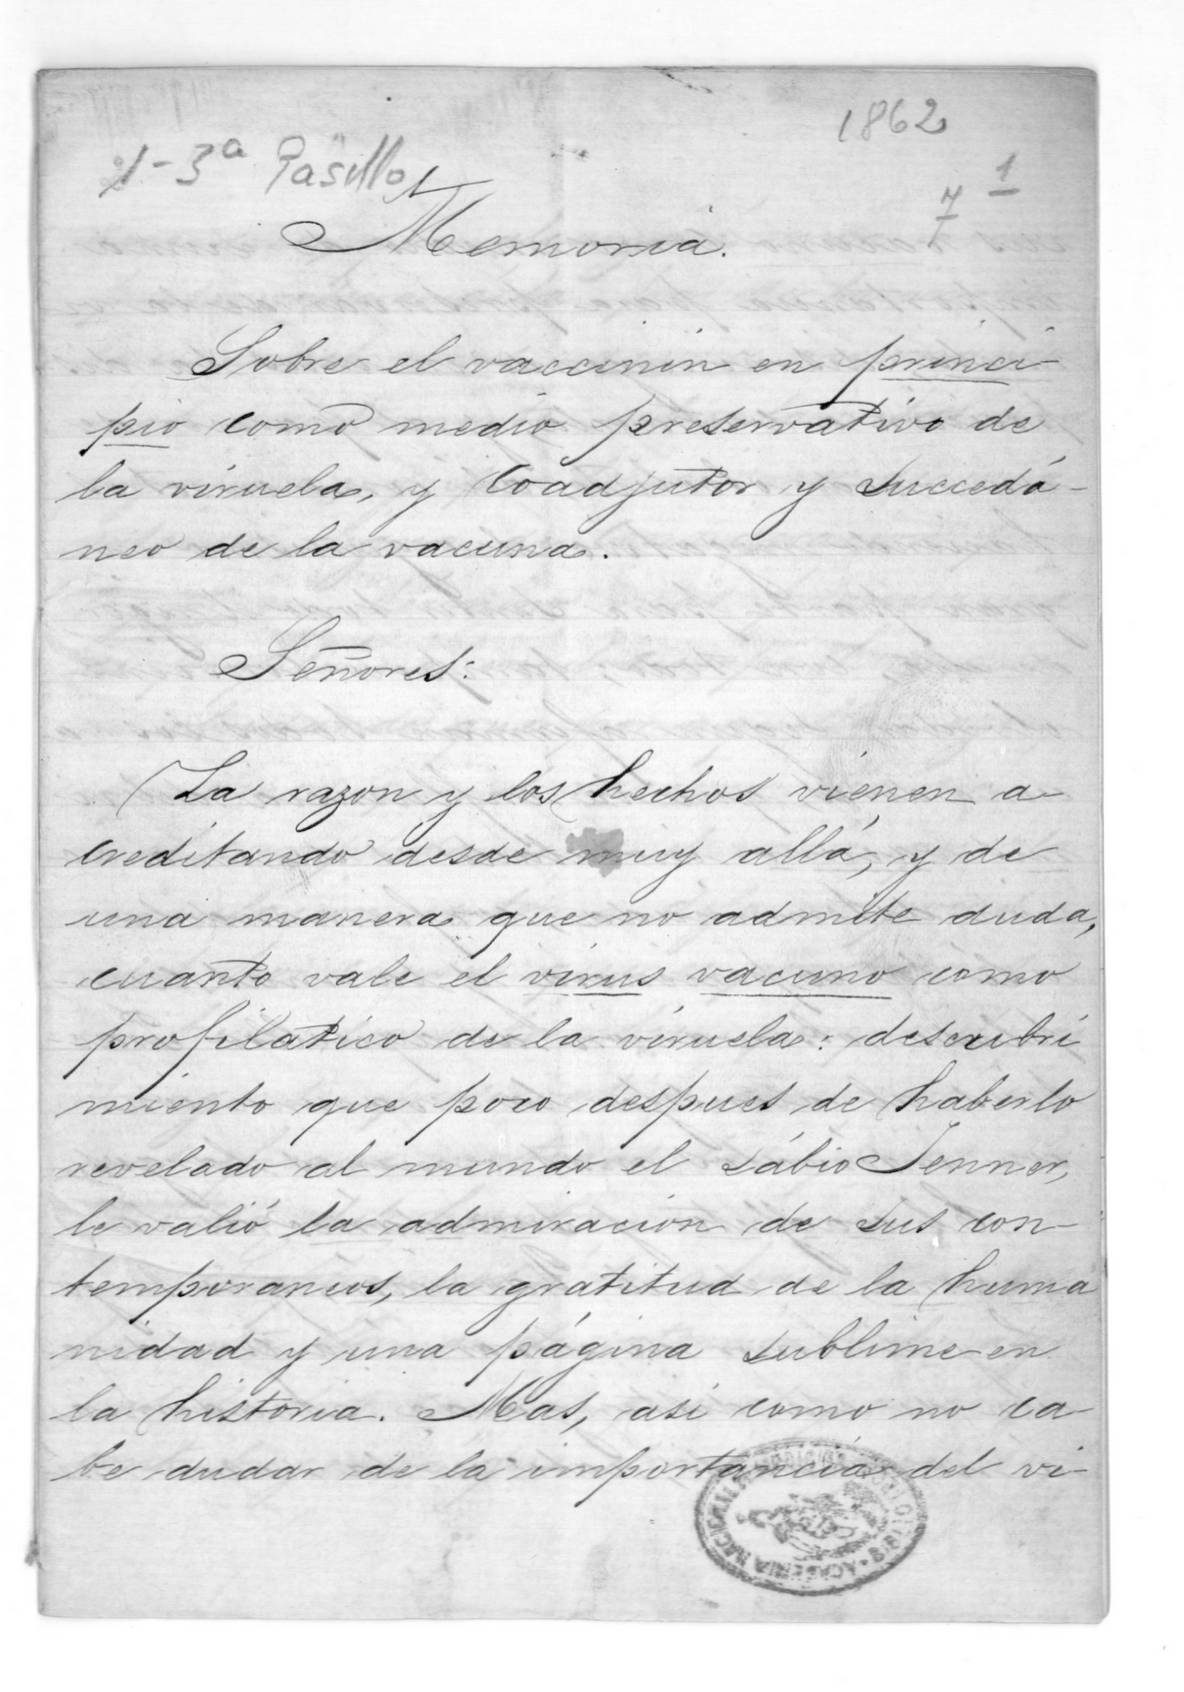 1862
1-3ª Pasillo
1
7
Memoria.
Sobre el vaccinin en princi-
pio como medio preservativo de
la viruela, y coadjutor y succedá-
neo de la vacuna.
Señores:
La razon y los hechos vienen a-
creditando desde muy allá, y de
una manera que no admite duda,
cuanto vale el virus vacuno como
profilatico de la viruela: descubri
miento que poco despues de haberlo
revelado al mundo el sábio Jenner,
le valió la admiracion de sus con-
temporaneos, la gratitud de la huma
nidad y una página sublime en
la historia. Mas, asi como no ca-
be dudar de la importancia del vi-
ACADEMIA NACIONAL DE MEDICINA